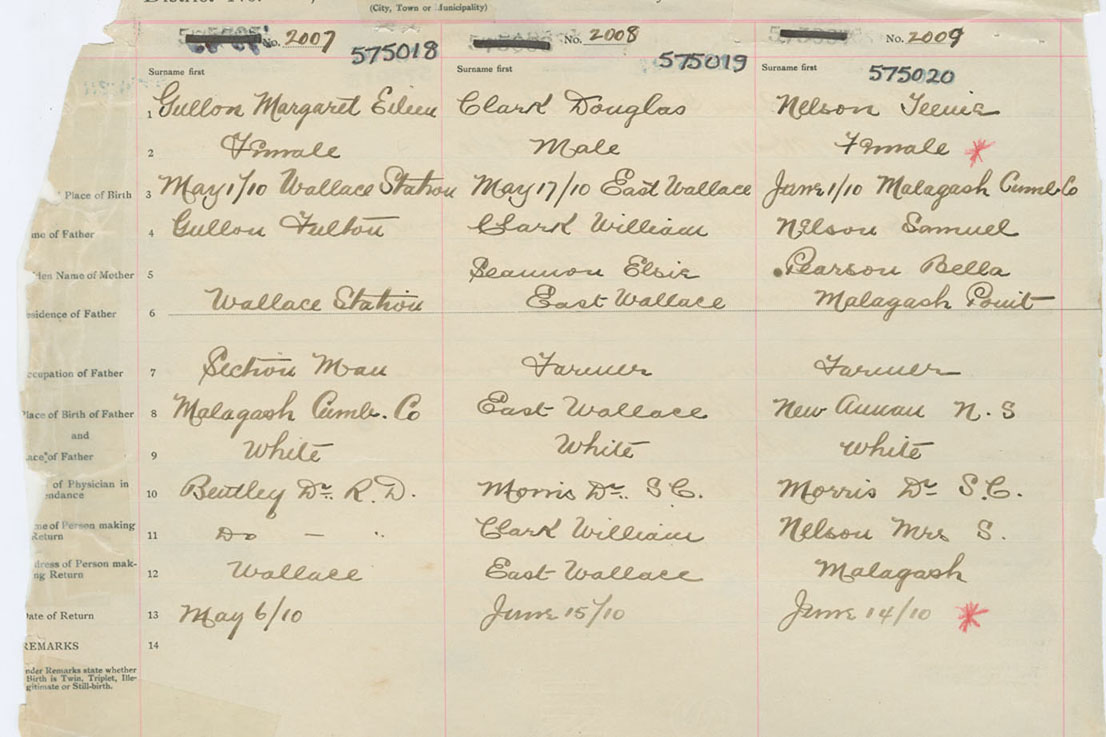 District No.
(City, Town or Municipality)
No. 2007 No. 2008 No. 2009
575018 575019 575020
Surname first Surname first Surname first
1 Gullon Margaret Eileen Clark Douglas Nelson Teenie
2 Female Male Female
Place of Birth 3 May 1/10 Wallace Station May 17/10 East Wallace June 1/10 Malagash Cumb Co
me of Father 4 Gullon Fulton Clark William Nelson Samuel
den Name of Mother 5 Seamon Elsie Pearson Bella
sidence of Father 6 Wallace Station East Wallace Malagash Point
ccupation of Father 7 Section Man Farmer Farmer
lace of Birth of Father 8 Malagash Cumb. Co East Wallace New Annan N. S
and
ace of Father 9 White White White
of Physician in
endance 10 Bentley Dr. R. D. Morris Dr. S. C. Morris Dr S. C.
me of Person making
Return 11 Do — " Clark William Nelson Mrs S.
dress of Person mak-
ng Return 12 Wallace East Wallace Malagash
ate of Return 13 May 6/10 June 15/10 June 14/10
REMARKS 14
nder Remarks state whether
Birth is Twin, Triplet, Ille-
gitimate or Still-birth.